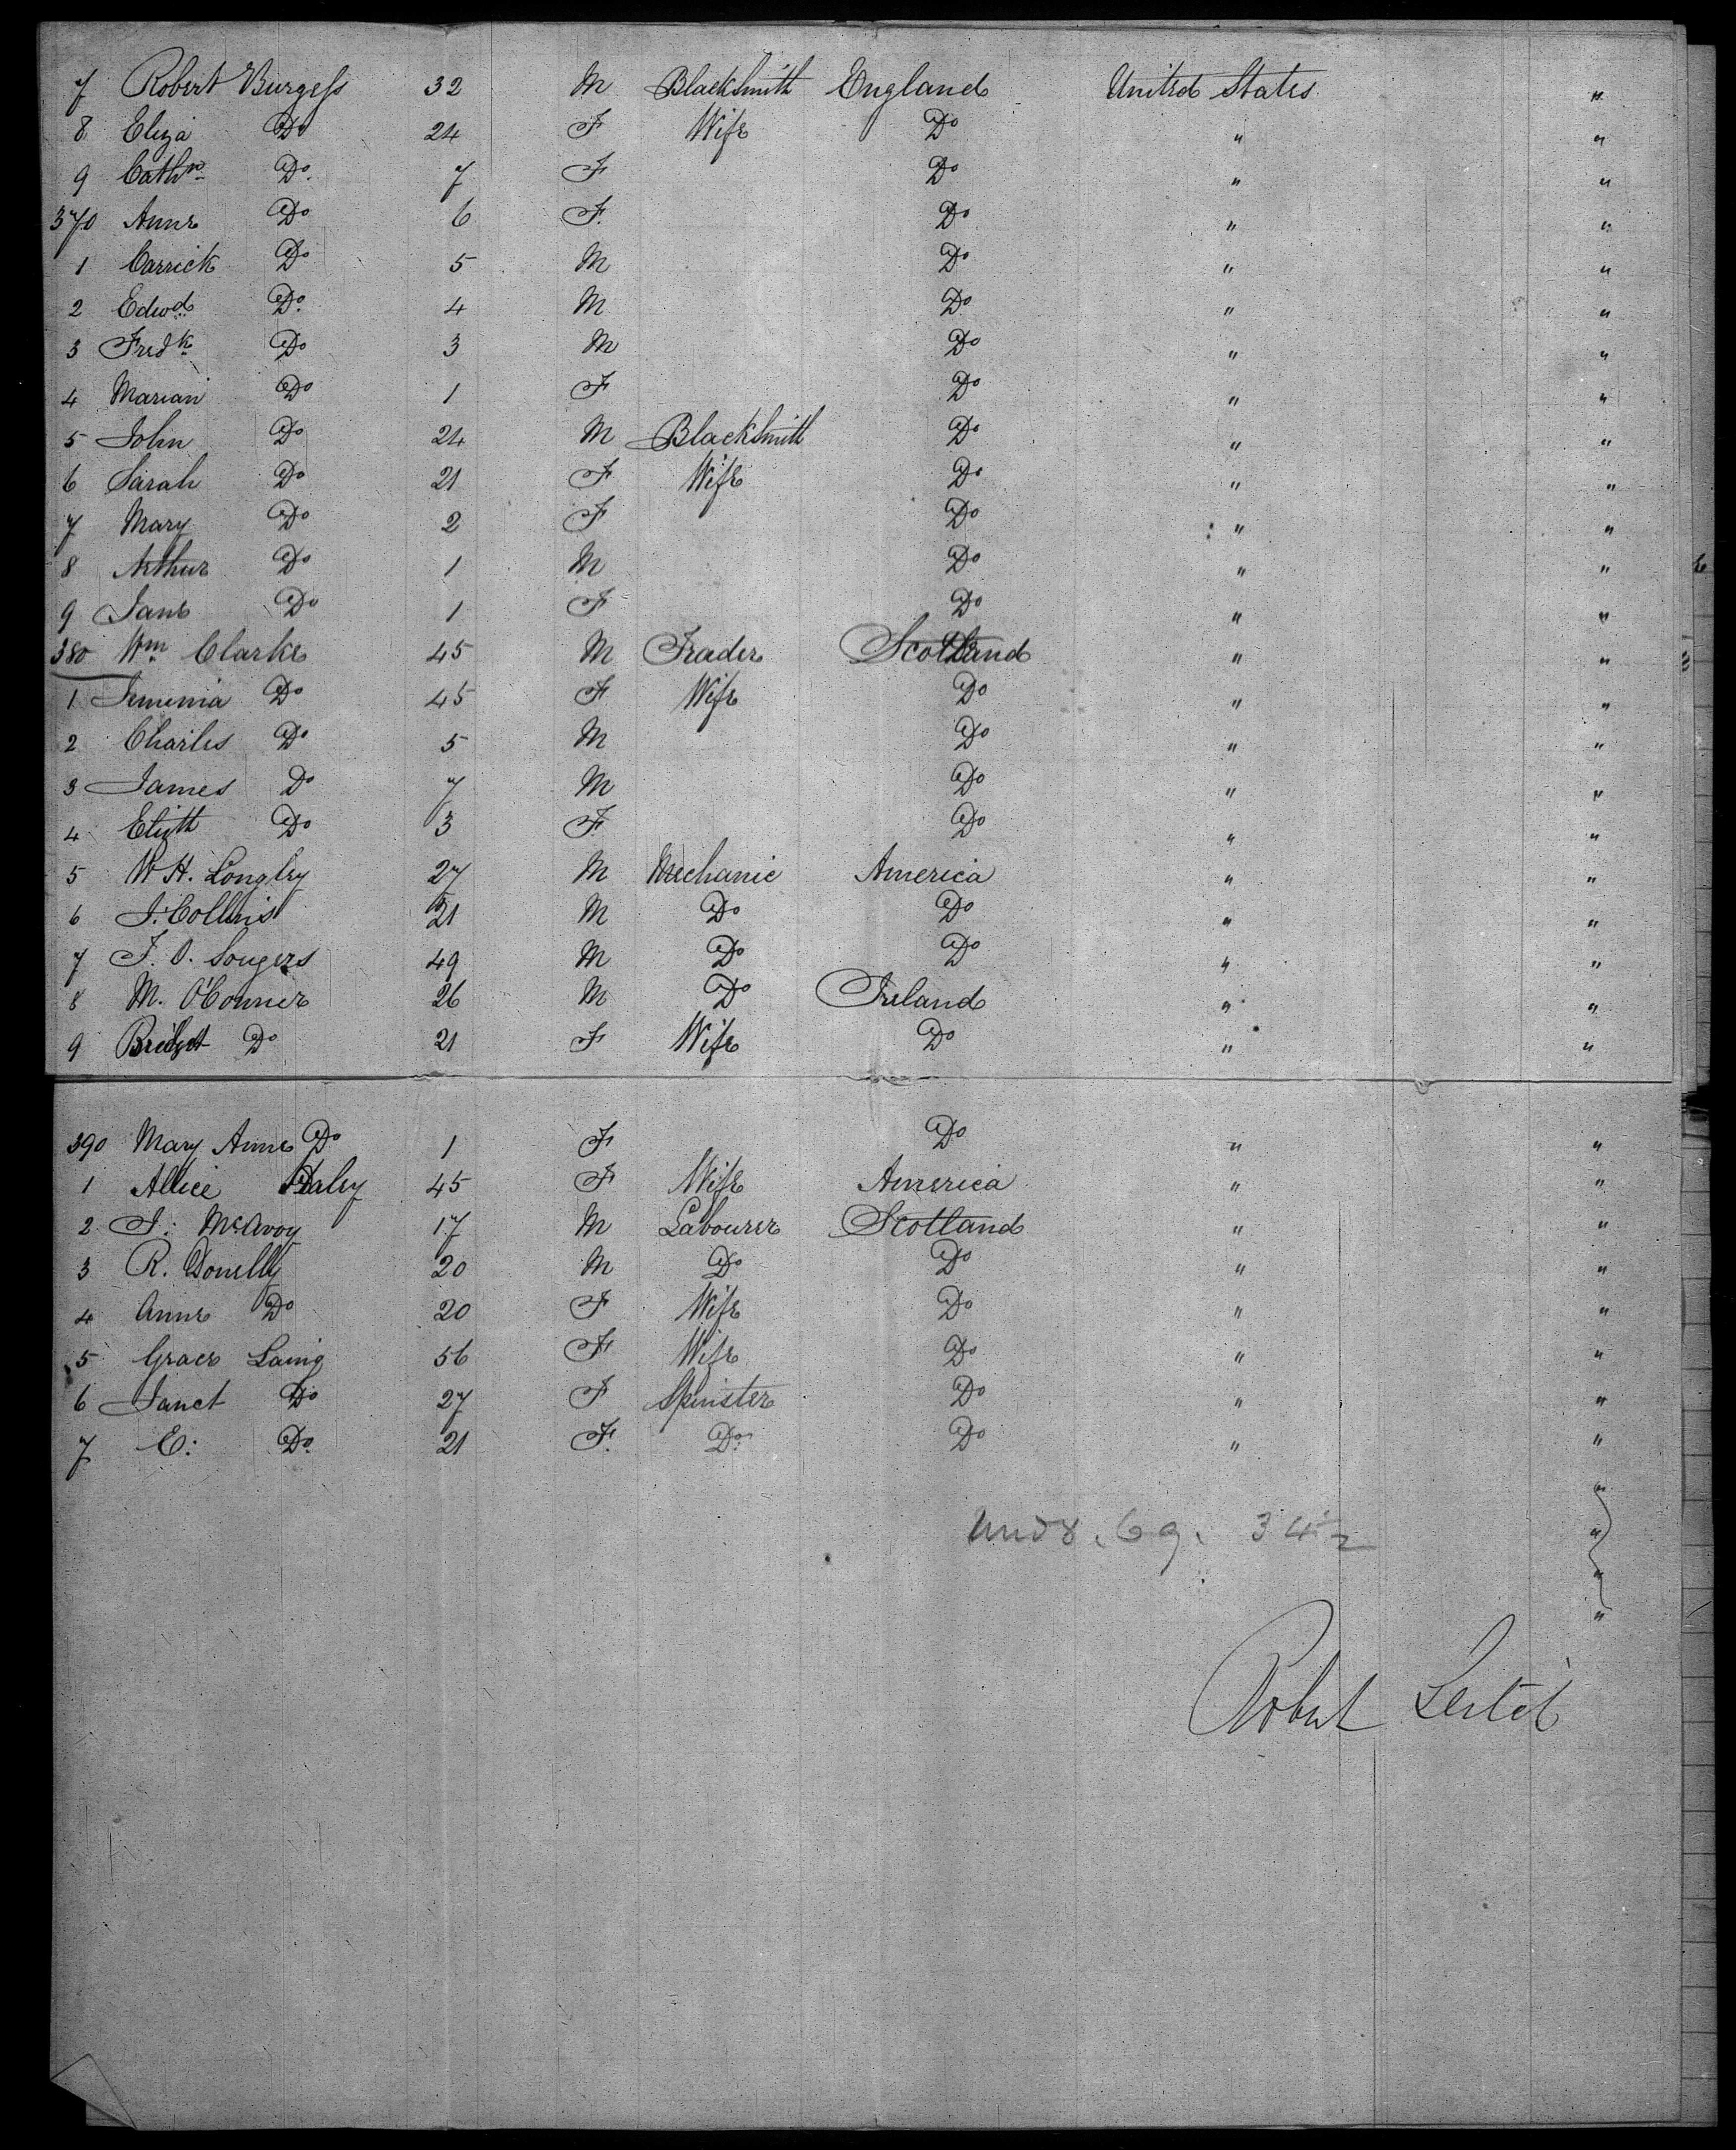 7 Robert Burgess 32 M Blacksmith England United States "
8 Eliza Do 24 F Wife Do " "
9 Cathne Do 7 F Do " "
370 Anne Do 6 F. Do " "
1 Carrick Do 5 M Do " "
2 Edwd Do 4 M Do " "
3 Fredk Do 3 M Do " "
4 Marian Do 1 F Do " "
5 John Do 24 M Blacksmith Do " "
6 Sarah Do 21 F Wife Do " "
7 Mary Do 2 F Do " "
8 Arthur Do 1 M Do " "
9 Jane Do 1 F Do " "
380 Wm Clarke 45 M Trader Scotland " "
1 Jemimia Do 45 F Wife Do " "
2 Charles Do 5 M Do " "
3 James Do 7 M Do " "
4 Elizth Do 3 F. Do " "
5 W H. Longley 27 M Mechanic America " "
6 J. Collins 21 M Do Do " "
7 J. O. Sougers 49 M Do Do " "
8 M. O'Conner 26 M Do Ireland " "
9 Bridget Do 21 F Wife Do " "
390 Mary Anne Do 1 F Do " "
1 Allice Daley 45 F Wife America " "
2 J: McAvoy 17 M Labourer Scotland " "
3 R. Donelly 20 M Do Do " "
4 Anne Do 20 F Wife Do " "
5 Grace Laing 56 F Wife Do " "
6 Janet Do 27 F Spinster Do " "
7 E: Do 21 F. Do Do " "
"
69. 34½ "
"
"
Robert